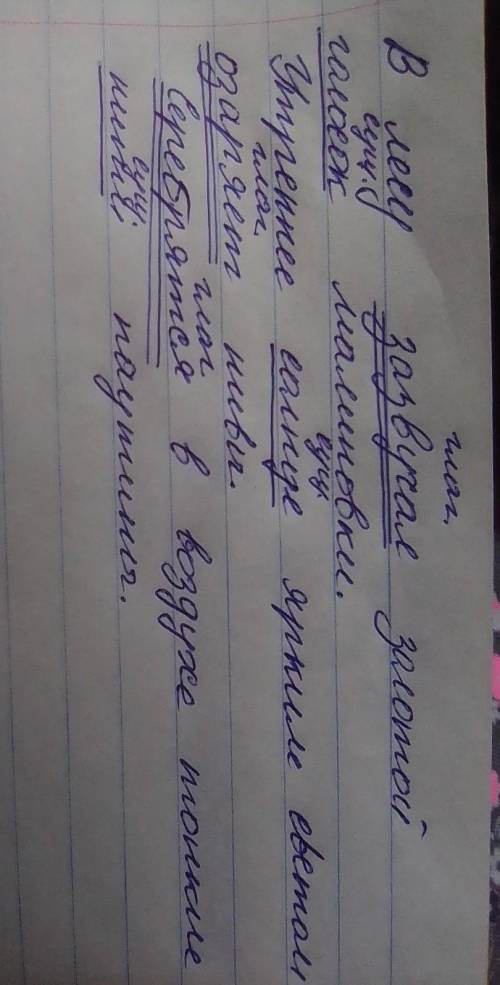 глаг.
В лесу зазвучал золотой
сущ.
голосок малиновки.
сущ.
Утреннее солнце ярким светом
глаг.
озаряет нивы.
глаг.
Серебрятся в воздухе тонкие
сущ.
нити паутины.